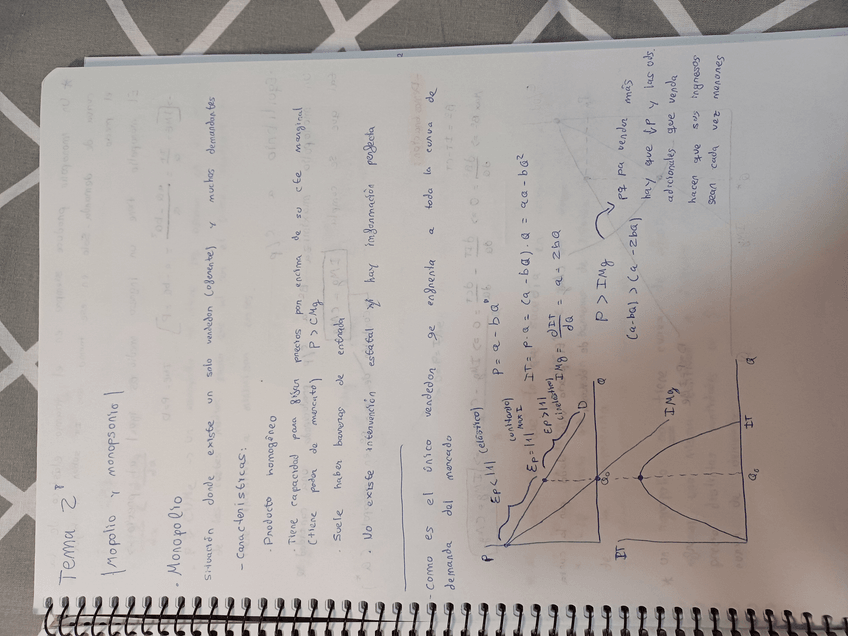 Tema 2
(Mopolio y monopsonio)
- Monopolio
situación donde existe un solo vendedor (oferente) y muchos demandantes
- Características:
· Producto homogéneo
· Tiene capacidad para fijar precios por encima de su cte marginal
(tiene poder de mercado) P > CMg
· Suele haber barreras de entrada
· No existe intervención estatal y hay información perfecta
- Como es el único vendedor se enfrenta a toda la curva de
demanda del mercado
P
EP < |1| (elástico)
(unitario)
EP = |1|
EP > |1|
D
Q
Q₀
IMg
IT
Q₀
IT
Q
P = a - bQ
IT = P·Q = (a - bQ)·Q = aQ - bQ²
IMg = dIT/dQ = a - 2bQ
P > IMg
(a-bQ) > (a-2bQ)
pq pa vender más
hay que ↓P y las uds.
adicionales que venda
hacen que sus ingresos
sean cada vez menores